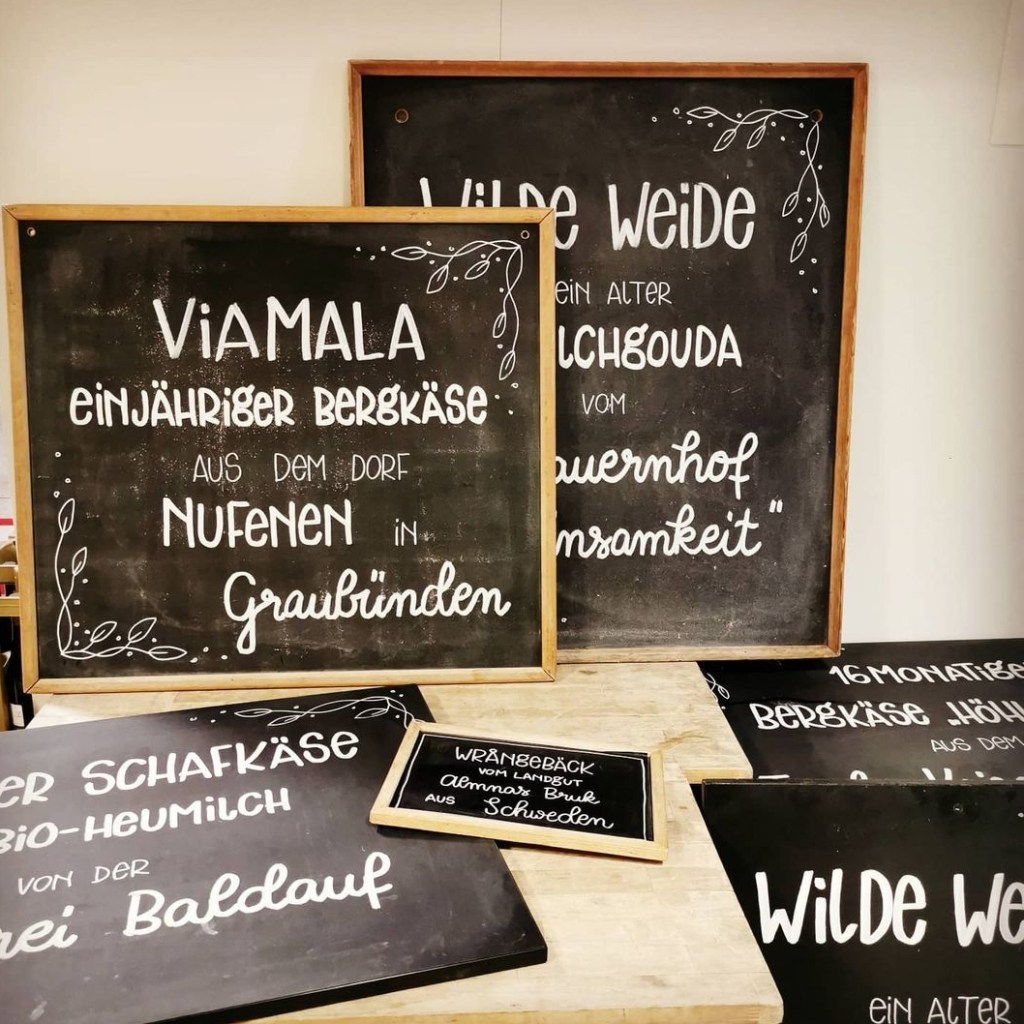 ViAMALA
einjähriger Bergkäse
aus dem Dorf
Nufenen in
Graubünden
Wilde Weide
ein alter
lchgouda
vom
auernhof
nsamkeit"
er Schafkäse
Bio-Heumilch
von der
rei Baldauf
Wrångebäck
vom Landgut
Almnäs Bruk
aus Schweden
16 monatige
Bergkäse „Höh
aus dem
Wilde We
ein alter